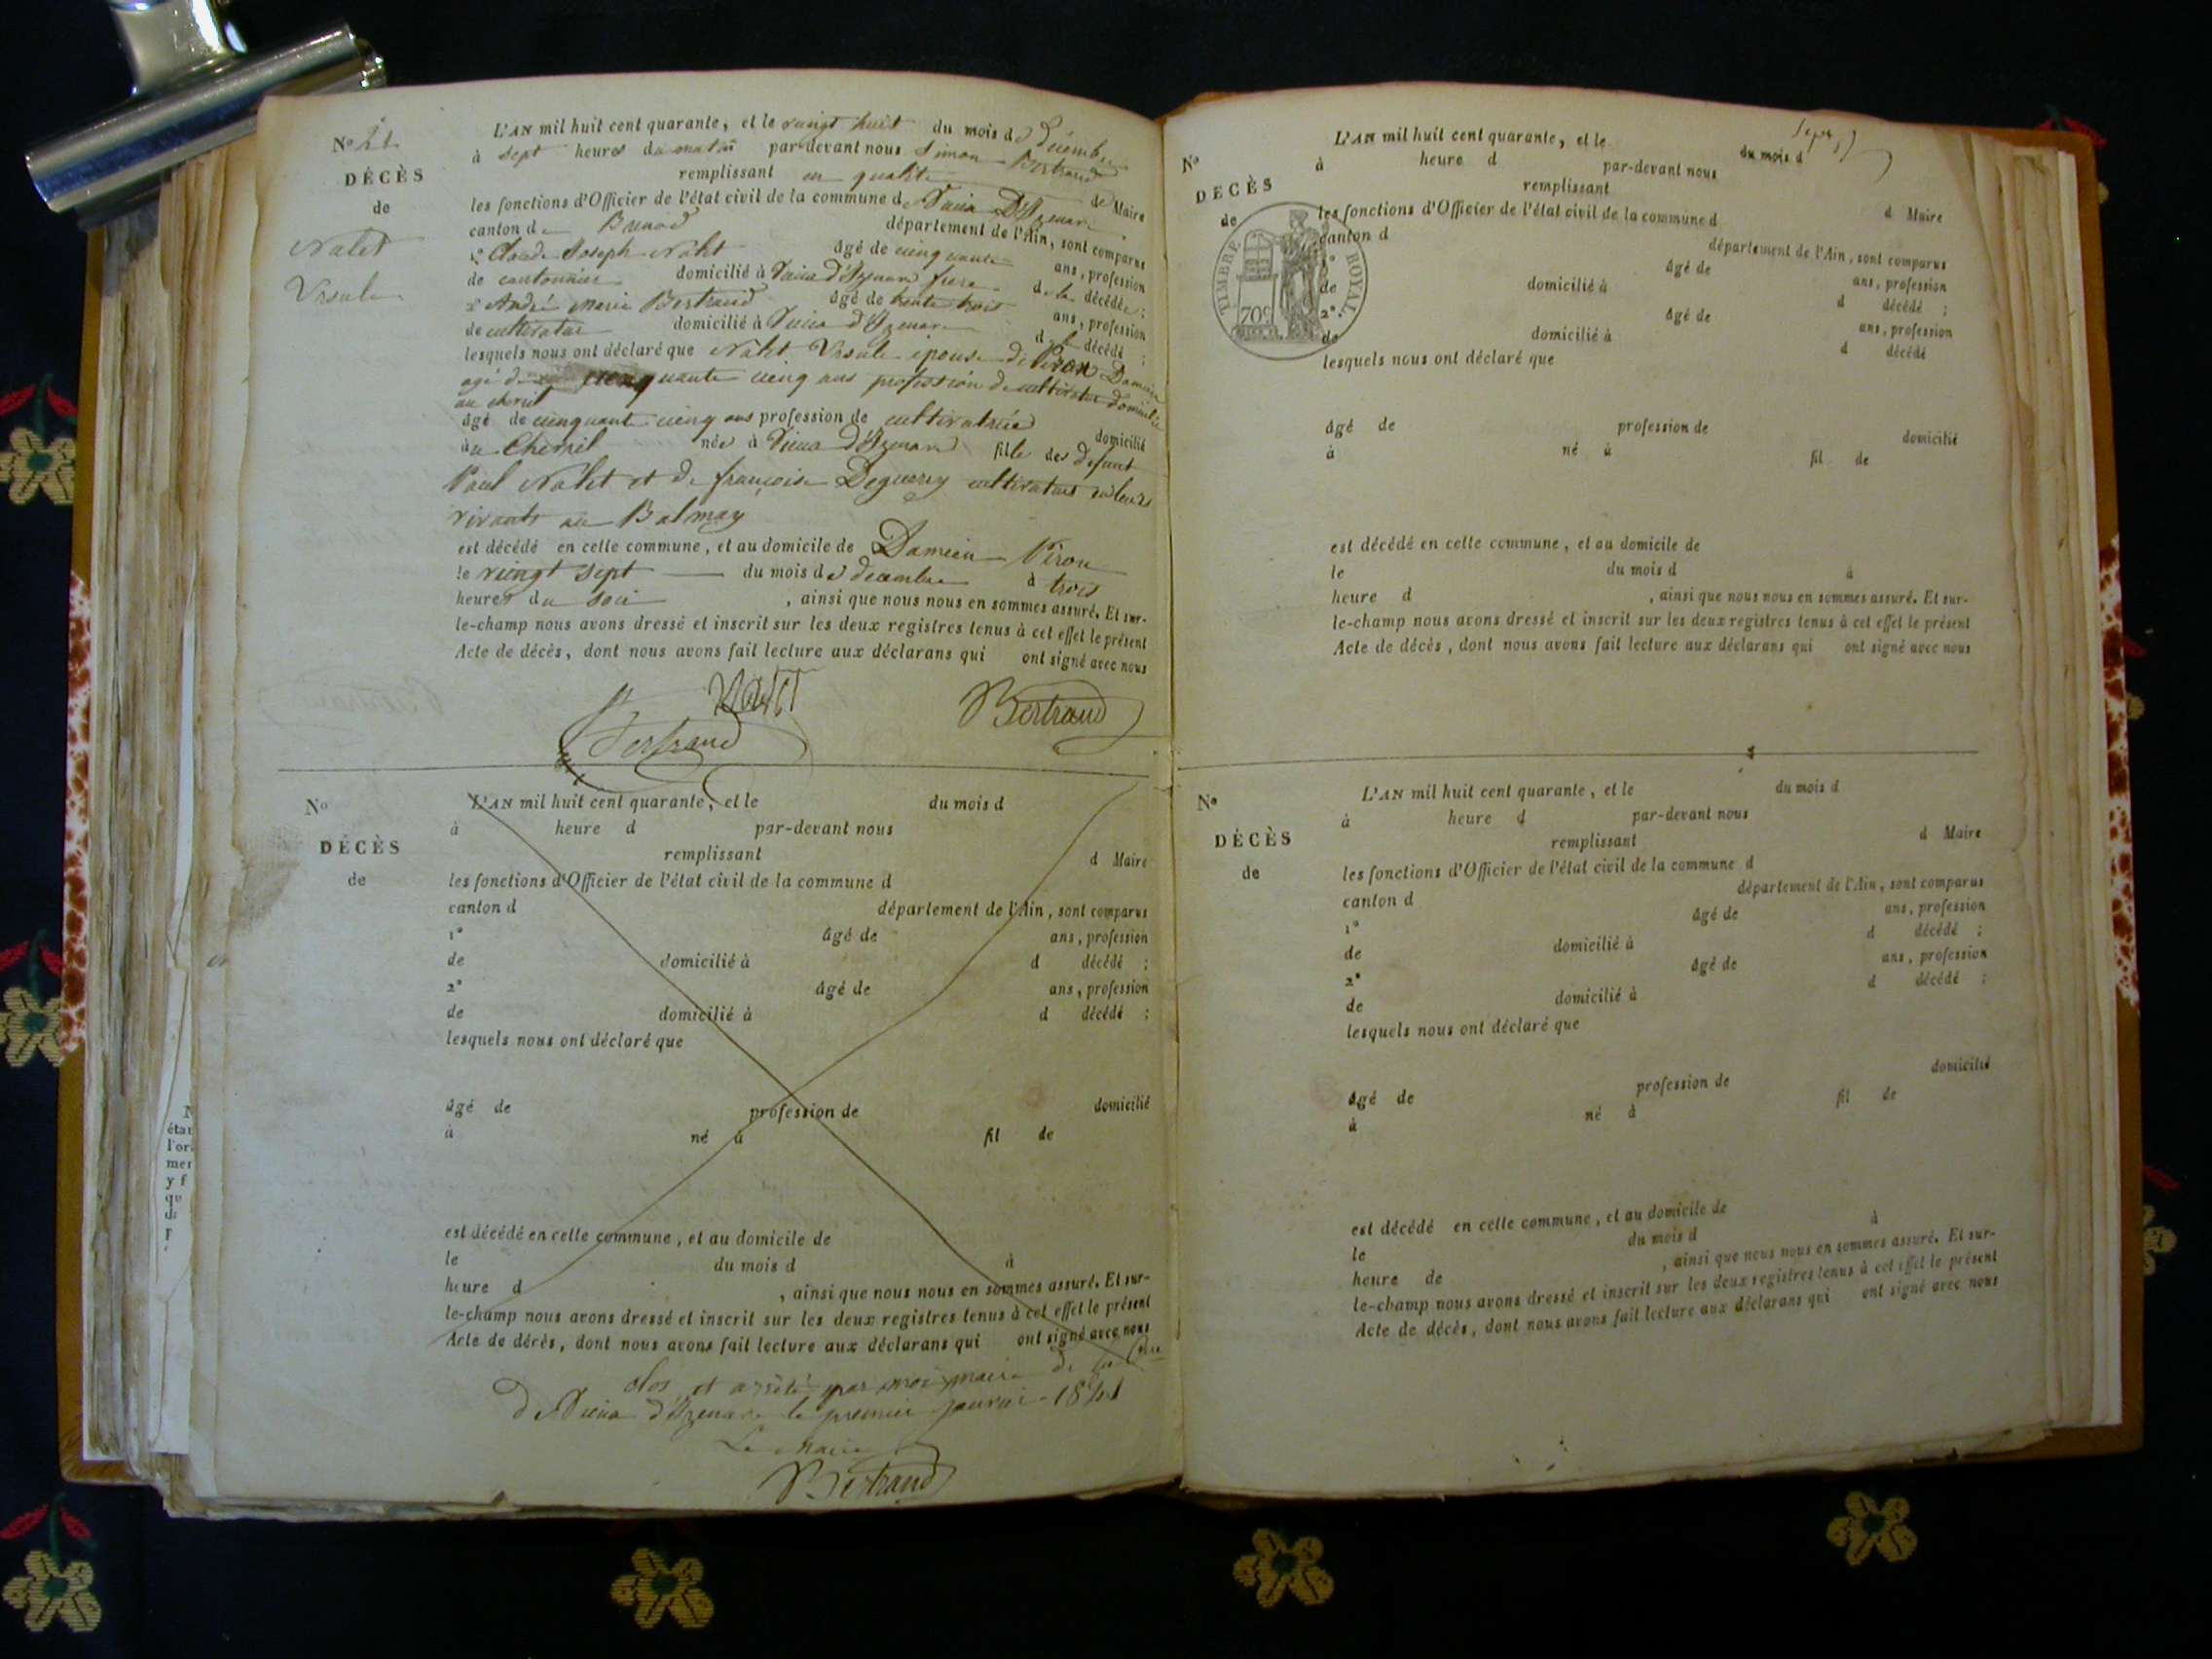 No 21
DÉCÈS
de
Nalet
Ursule
L'AN mil huit cent quarante, et le vingt huit du mois de Décembre
à sept heures du matin par-devant nous Simon Bertrand
remplissant en qualité de Maire
les fonctions d'Officier de l'état civil de la commune de Vieu D'Izenave
canton de Brénod département de l'Ain, sont comparus
1º Claude Joseph Nalet âgé de cinquante ans, profession
de cantonnier domicilié à Vieu d'Izenave frere de la décédée ;
2º André Marie Bertrand âgé de trente trois ans, profession
de cultivateur domicilié à Vieu d'Izenave d décédé ;
lesquels nous ont déclaré que Nalet Ursule epouse de Piron Damien
agé de cinquante cinq ans profession de cultivateur domicilié
au chevril
âgé de cinquante cinq ans profession de cultivatrice domicilié
au Chevril née à Vieu d'Izenave fille des defunt
Paul Nalet et de françoise Deguerry cultivateurs de leurs
vivants au Balmay
est décédé en cette commune, et au domicile de Damien Piron
le vingt sept du mois de decembre à trois
heures du soir , ainsi que nous nous en sommes assuré. Et sur-
le-champ nous avons dressé et inscrit sur les deux registres tenus à cet effet le présent
Acte de décès, dont nous avons fait lecture aux déclarans qui ont signé avec nous
Nalet
Bertrand
Bertrand
No
DÉCÈS
de
L'AN mil huit cent quarante, et le du mois d
à heure d par-devant nous
remplissant d Maire
les fonctions d'Officier de l'état civil de la commune d
canton d département de l'Ain, sont comparus
1º âgé de ans, profession
de domicilié à d décédé ;
2º âgé de ans, profession
de domicilié à d décédé ;
lesquels nous ont déclaré que
âgé de profession de domicilié
à né à fil de
est décédé en cette commune, et au domicile de
le du mois d à
heure d , ainsi que nous nous en sommes assuré. Et sur-
le-champ nous avons dressé et inscrit sur les deux registres tenus à cet effet le présent
Acte de décès, dont nous avons fait lecture aux déclarans qui ont signé avec nous
clos et arrêté par moi maire de la
De Vieu d'Izenave le premier janvier 1841
Le Maire
Bertrand
No
DECÈS
de
TIMBRE ROYAL
70c
L'AN mil huit cent quarante, et le du mois d
à heure d par-devant nous
remplissant d Maire
les fonctions d'Officier de l'état civil de la commune d
canton d département de l'Ain, sont comparus
1º âgé de ans, profession
de domicilié à d décédé ;
2º âgé de ans, profession
de domicilié à d décédé
lesquels nous ont déclaré que
âgé de profession de domicilié
à né à fil de
est décédé en cette commune, et au domicile de
le du mois d à
heure d , ainsi que nous nous en sommes assuré. Et sur-
le-champ nous avons dressé et inscrit sur les deux registres tenus à cet effet le présent
Acte de décès, dont nous avons fait lecture aux déclarans qui ont signé avec nous
No
DÉCÈS
de
L'AN mil huit cent quarante, et le du mois d
à heure d par-devant nous
remplissant d Maire
les fonctions d'Officier de l'état civil de la commune d
canton d département de l'Ain, sont comparus
1º âgé de ans, profession
de domicilié à d décédé ;
2º âgé de ans, profession
de domicilié à d décédé ;
lesquels nous ont déclaré que
âgé de profession de domicilié
à né à fil de
est décédé en cette commune, et au domicile de
le du mois d à
heure de , ainsi que nous nous en sommes assuré. Et sur-
le-champ nous avons dressé et inscrit sur les deux registres tenus à cet effet le présent
Acte de décès, dont nous avons fait lecture aux déclarans qui ont signé avec nous